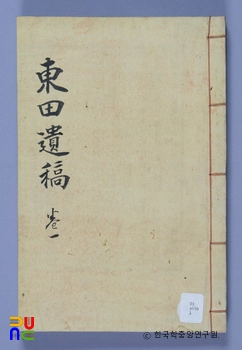 東田遺稿
卷一
ⓒ 한국학중앙연구원